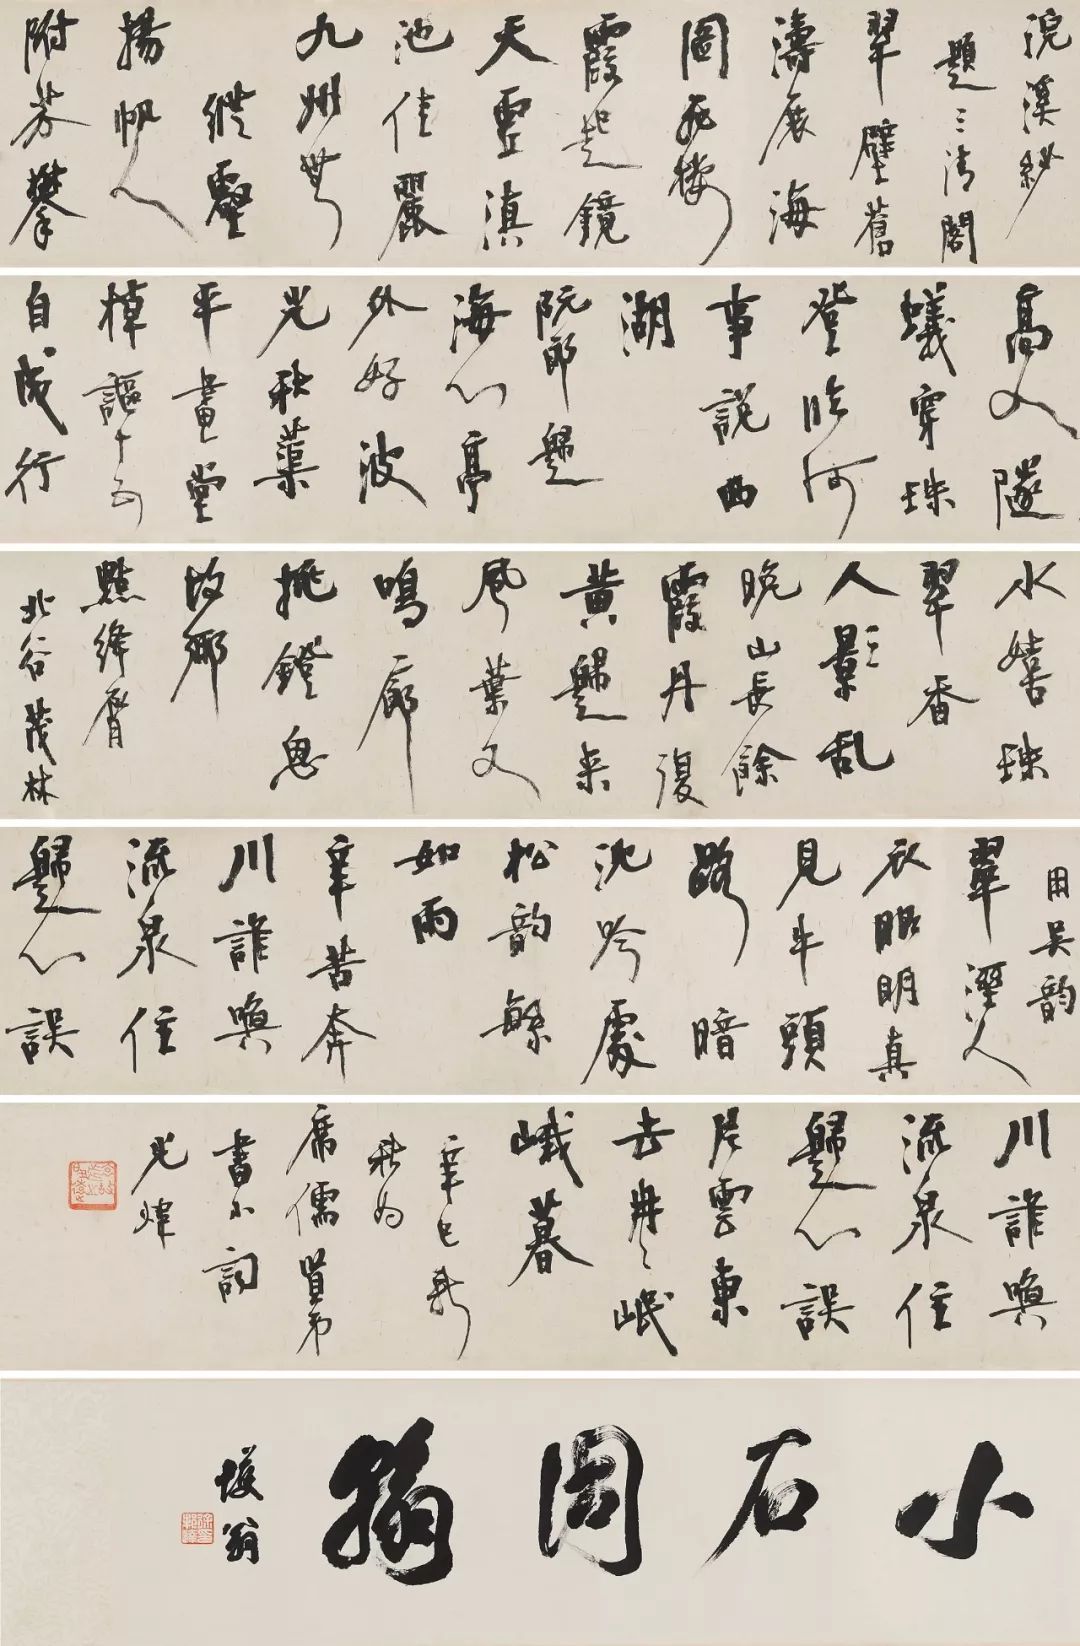 浣溪紗
題三清閣
翠壁蒼
濤展海
圖飛樓
霞起鏡
天虛滇
池佳麗
九州無
縱壑
揚帆人
附芥攀
高人隧
蟻穿珠
登臨何
事說西
湖
阮郎歸
海心亭
外好波
光秋蕖
平畫堂
棹謳十五
自成行
水嬉珠
翠香
人影〻亂
晚山長餘
霞丹復
黃歸來
風葉又
鳴廊
挑鐙思
故鄉
點絳脣
北谷茂林
用吳韵
翠溼人
衣眼明真
見牛頭
路暗
沈吟處
松韵繇
如雨
辛苦奔
川誰喚
流泉住
歸心誤
川誰喚
流泉住
歸心誤
片雲東
去冉〻岷
峨暮
辛巳新
秋為
席儒賢弟
書小詞
光煒
小石
翁